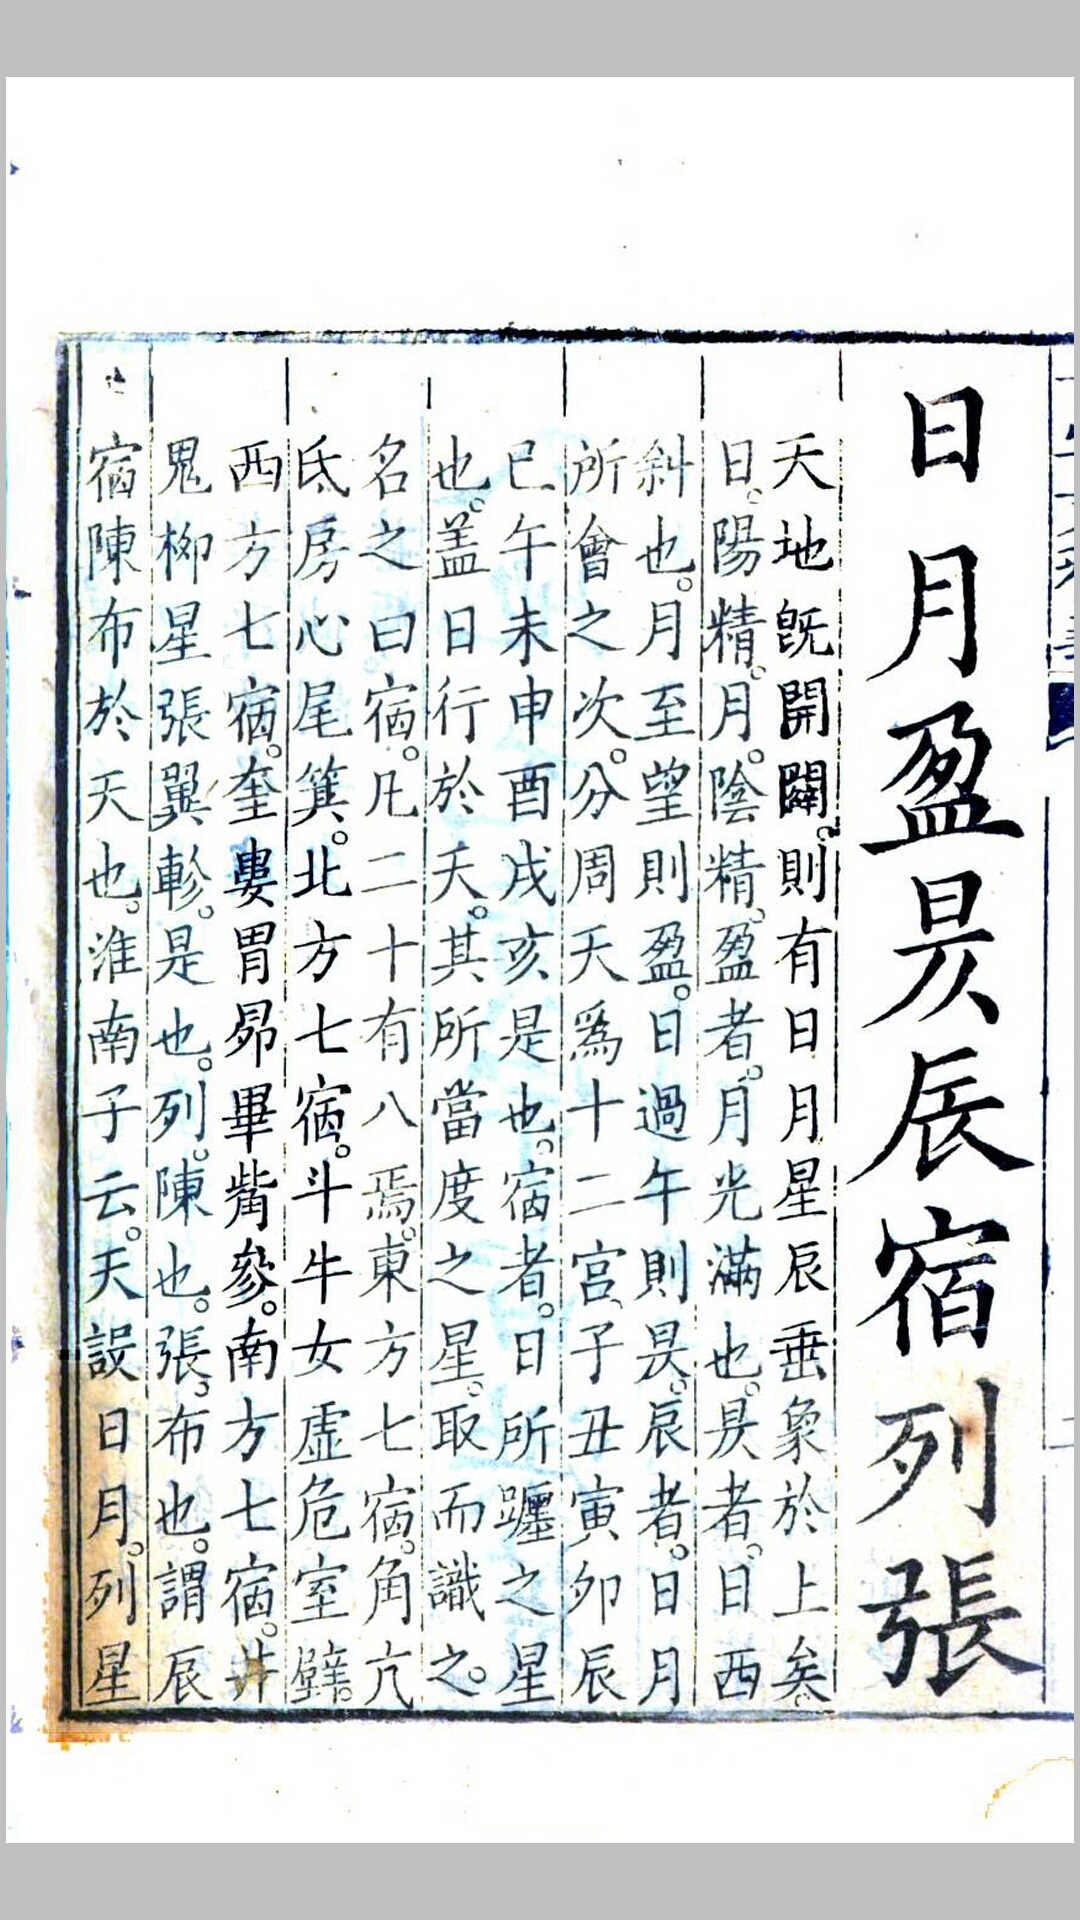 日月盈昃辰宿列張
天地旣開闢。則有日月星辰垂象於上矣。
日。陽精。月。陰精。盈者。月光滿也。昃者。日西
斜也。月至望則盈。日過午則昃。辰者。日月
所會之次。分周天爲十二宮、子丑寅卯辰
巳午未申酉戌亥是也。宿者。日所躔之星
也。盖日行於天。其所當度之星。取而識之。
名之曰宿。凡二十有八焉。東方七宿。角亢
氐房心尾箕。北方七宿。斗牛女虛危室壁。
西方七宿。奎婁胃昴畢觜參。南方七宿。井
鬼柳星張翼軫。是也。列。陳也。張。布也。謂辰
宿陳布於天也。淮南子云。天設日月。列星